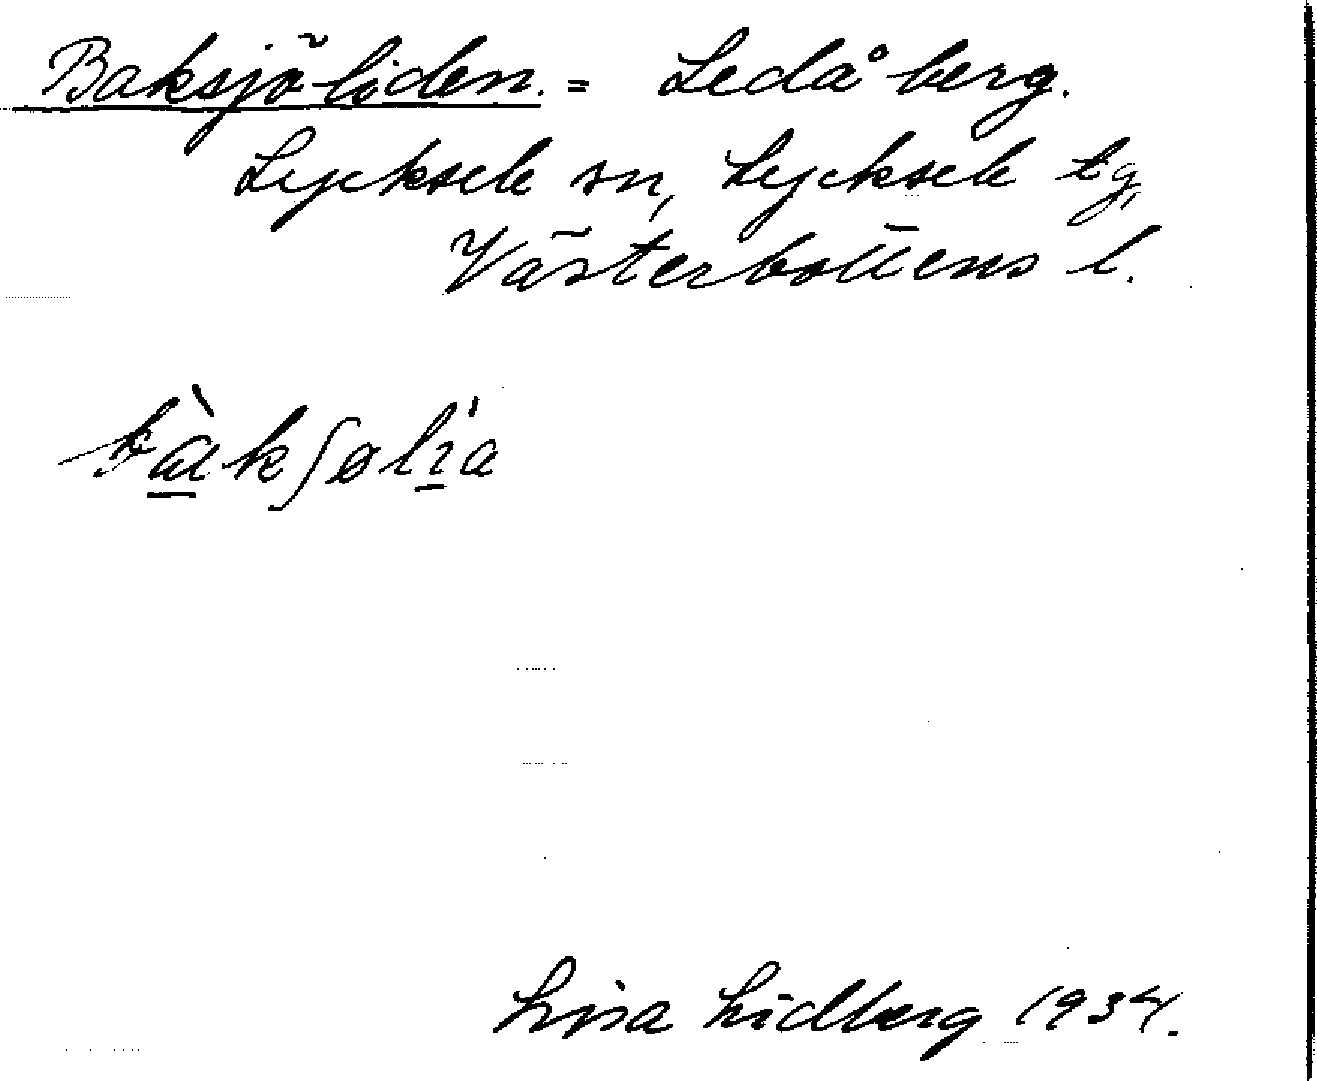 Baksjöliden. = Ledåberg.
Lycksele sn, Lycksele tg,
Västerbottens l.
bàkʃølía
Lisa Lidberg 1934.